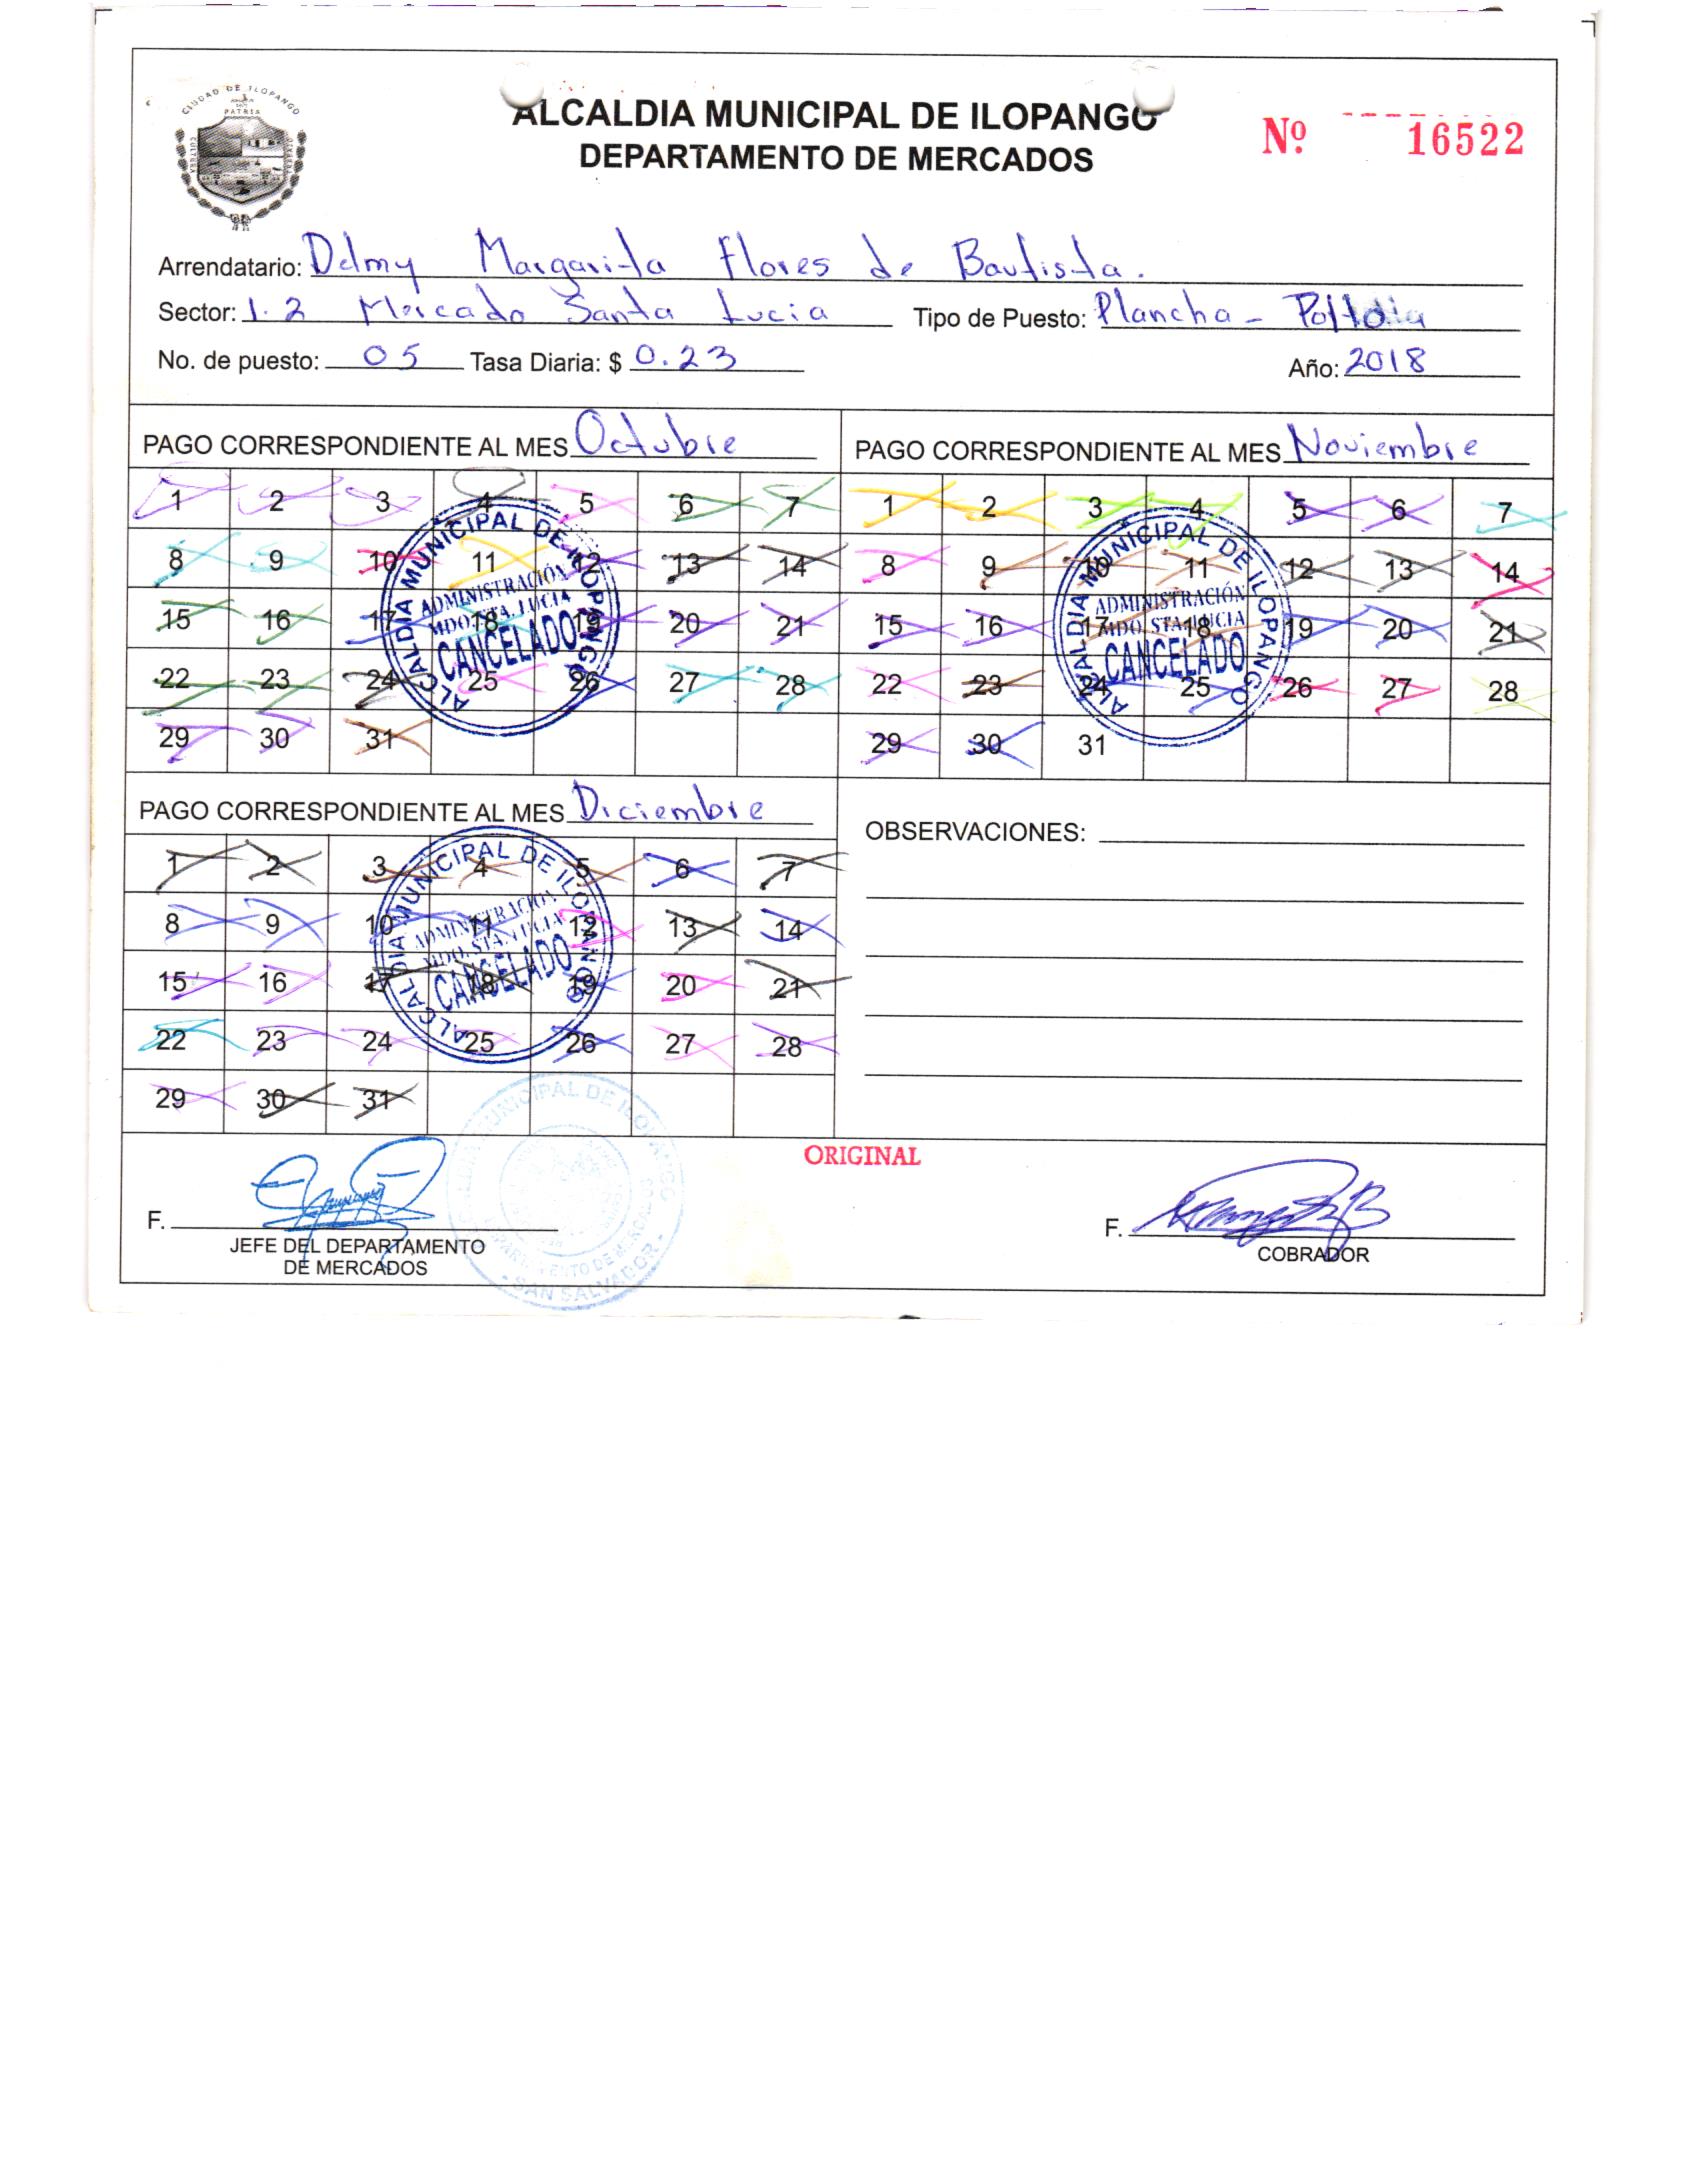 CIUDAD DE ILOPANGO
PATRIA
CULTURA
ALCALDIA MUNICIPAL DE ILOPANGO
DEPARTAMENTO DE MERCADOS
Nº 16522
Arrendatario: Delmy Margarita Flores de Bautista.
Sector: 1.2 Mercado Santa Lucia Tipo de Puesto: Plancha -
No. de puesto: 05 Tasa Diaria: $ 0.23 Año: 2018
PAGO CORRESPONDIENTE AL MES Octubre
1 2 3 4 5 6 7
8 9 10 11 12 13 14
15 16 17 18 19 20 21
22 23 24 25 26 27 28
29 30 31
ALCALDIA MUNICIPAL DE ILOPANGO
ADMINISTRACIÓN
MDO. STA. LUCIA
CANCELADO
PAGO CORRESPONDIENTE AL MES Noviembre
1 2 3 4 5 6 7
8 9 10 11 12 13 14
15 16 17 18 19 20 21
22 23 24 25 26 27 28
29 30 31
ALCALDIA MUNICIPAL DE ILOPANGO
ADMINISTRACIÓN
MDO. STA. LUCIA
CANCELADO
PAGO CORRESPONDIENTE AL MES Diciembre
1 2 3 4 5 6 7
8 9 10 11 12 13 14
15 16 17 18 19 20 21
22 23 24 25 26 27 28
29 30 31
ALCALDIA MUNICIPAL DE ILOPANGO
ADMINISTRACIÓN
MDO. STA. LUCIA
CANCELADO
OBSERVACIONES:
ORIGINAL
F.
JEFE DEL DEPARTAMENTO
DE MERCADOS
ALCALDIA MUNICIPAL DE ILOPANGO
DEPARTAMENTO DE MERCADOS
- SAN SALVADOR -
F.
COBRADOR